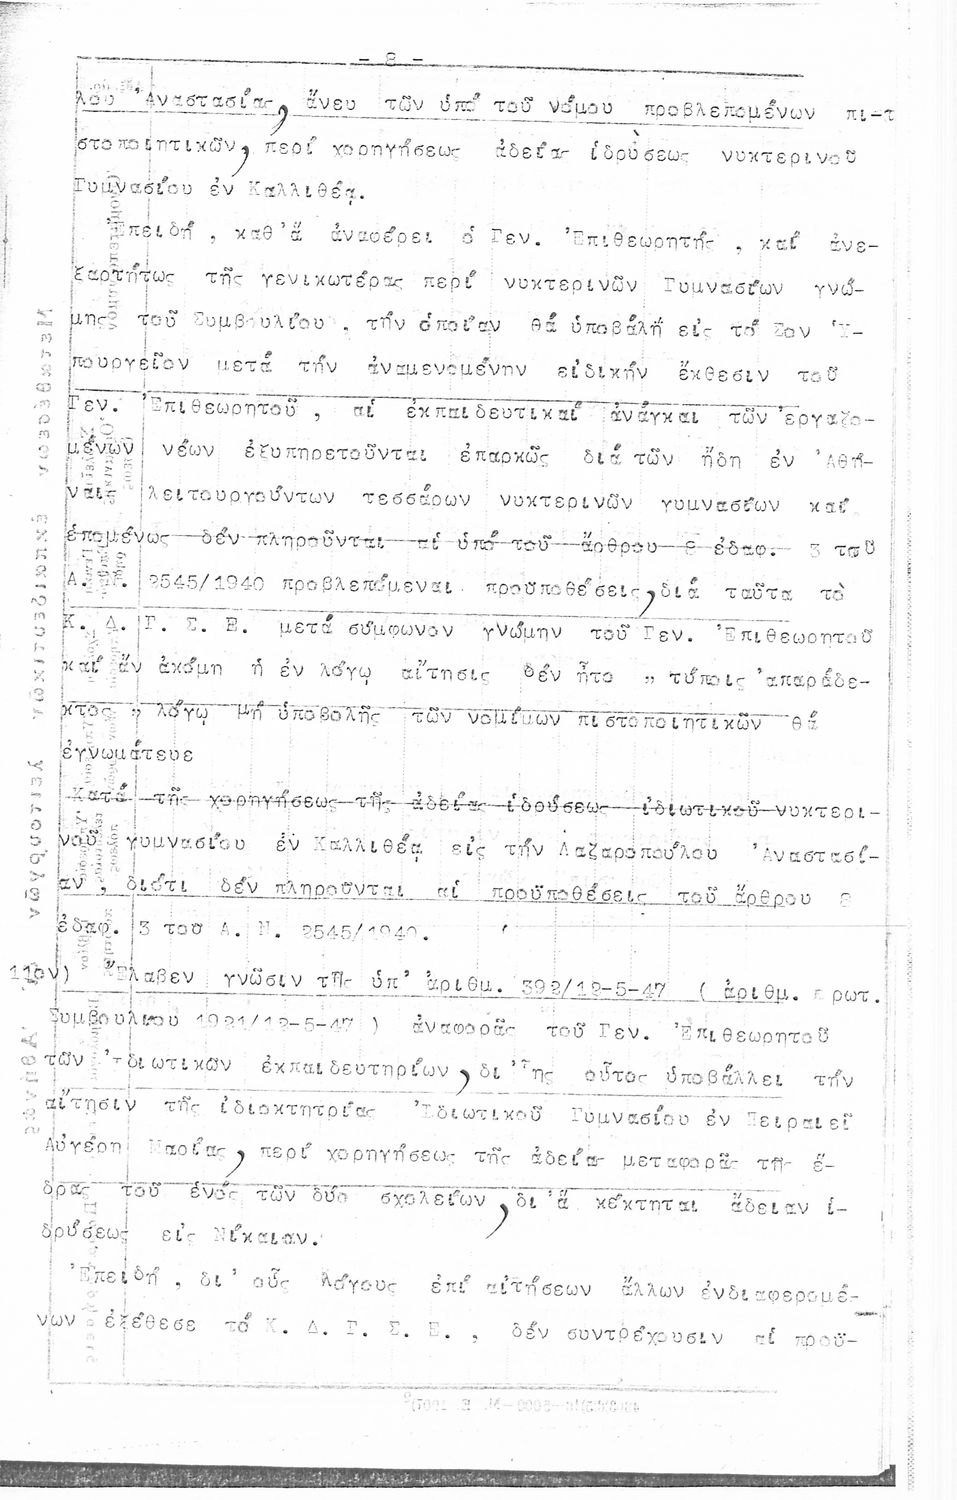 - 8 -
λου Ἀναστασίας, ἄνευ τῶν ὑπό τοῦ νόμου προβλεπομένων πι-
στοποιητικῶν, περί χορηγήσεως ἀδείας ἱδρύσεως νυκτερινοῦ
Γυμνασίου ἐν Καλλιθέᾳ.
Ἐπειδή, καθ' ἅ ἀναφέρει ὁ Γεν. Ἐπιθεωρητής, καί ἀνε-
ξαρτήτως τῆς γενικωτέρας περί νυκτερινῶν Γυμνασίων γνώ-
μης τοῦ Συμβουλίου, τήν ὁποίαν θά ὑποβάλῃ εἰς τό Σον Ὑ-
πουργεῖον μετά τήν ἀναμενομένην εἰδικήν ἔκθεσιν τοῦ
Γεν. Ἐπιθεωρητοῦ, αἱ ἐκπαιδευτικαί ἀνάγκαι τῶν ἐργαζο-
μένων νέων ἐξυπηρετοῦνται ἐπαρκῶς διά τῶν ἤδη ἐν Ἀθή-
ναις λειτουργούντων τεσσάρων νυκτερινῶν γυμνασίων καί
ἑπομένως δέν πληροῦνται αἱ ὑπό τοῦ ἄρθρου 8 ἐδαφ. 3 τοῦ
Α. Ν. 2545/1940 προβλεπόμεναι προϋποθέσεις, διά ταῦτα τό
Κ. Δ. Γ. Σ. Ε. μετά σύμφωνον γνώμην τοῦ Γεν. Ἐπιθεωρητοῦ
καί ἄν ἀκόμη ἡ ἐν λόγῳ αἴτησις δέν ἦτο " τύποις ἀπαράδε-
κτος " λόγῳ μή ὑποβολῆς τῶν νομίμων πιστοποιητικῶν θά
ἐγνωμάτευε
Κατά τῆς χορηγήσεως τῆς ἀδείας ἱδρύσεως ἰδιωτικοῦ νυκτερι-
νοῦ γυμνασίου ἐν Καλλιθέᾳ εἰς τήν Λαζαροπούλου Ἀναστασί-
αν, διότι δέν πληροῦνται αἱ προϋποθέσεις τοῦ ἄρθρου 8
ἐδαφ. 3 του Α. Ν. 2545/1940.
11ον) Ἔλαβεν γνῶσιν τῆς ὑπ' ἀριθμ. 392/12-5-47 ( ἀριθμ. πρωτ.
Συμβουλίου 1921/12-5-47 ) ἀναφορᾶς τοῦ Γεν. Ἐπιθεωρητοῦ
τῶν Ἰδιωτικῶν ἐκπαιδευτηρίων, δι' ἧς οὗτος ὑποβάλλει τήν
αἴτησιν τῆς ἰδιοκτητρίας Ἰδιωτικοῦ Γυμνασίου ἐν Πειραιεῖ
Αὐγέρη Μαρίας, περί χορηγήσεως τῆς ἀδείας μεταφορᾶς τῆς ἕ-
δρας τοῦ ἑνός τῶν δύο σχολείων, δι' ἅ κέκτηται ἄδειαν ἱ-
δρύσεως εἰς Νίκαιαν.
Ἐπειδή, δι' οὕς λόγους ἐπί αἰτήσεων ἄλλων ἐνδιαφερομέ-
νων ἐξέθεσε τό Κ. Δ. Γ. Σ. Ε., δέν συντρέχουσιν αἱ προϋ-